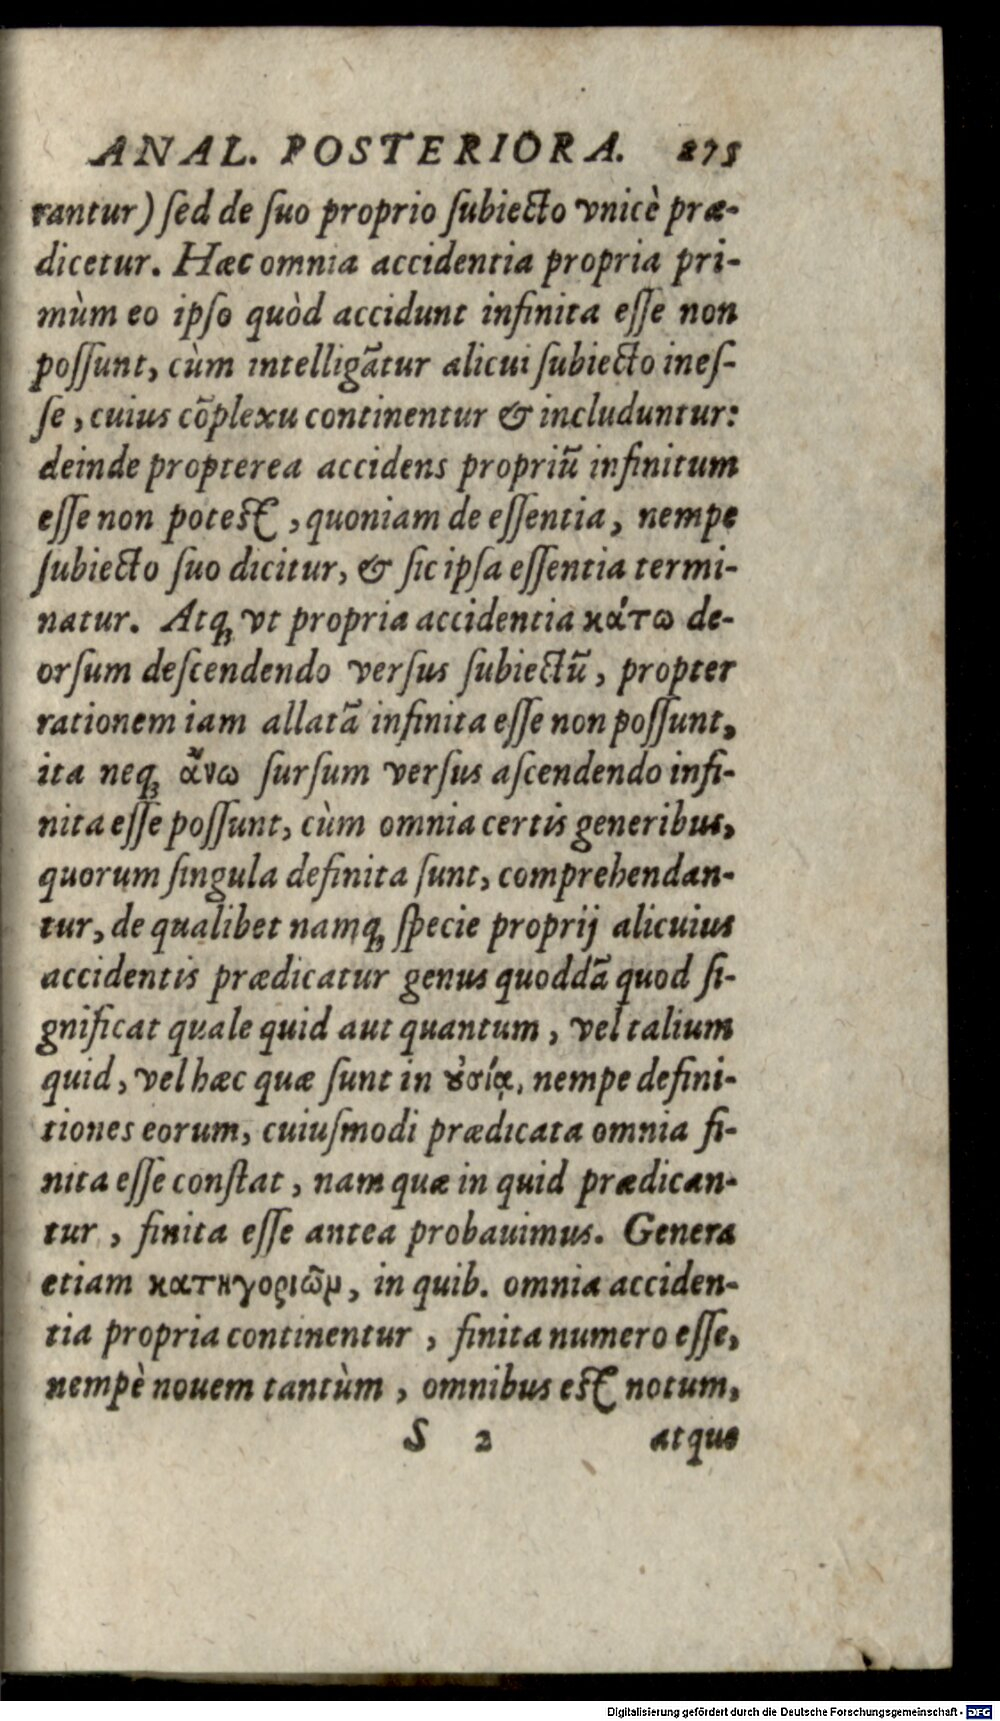 ANAL. POSTERIORA. 275
rantur) ſed de ſuo proprio ſubiecto vnicè præ-
dicetur. Hæc omnia accidentia propria pri-
mùm eo ipſo quòd accidunt infinita eſſe non
poſſunt, cùm intelligãtur alicui ſubiecto ineſ-
ſe, cuius cõplexu continentur & includuntur:
deinde propterea accidens propriũ infinitum
eſſe non poteſt, quoniam de eſſentia, nempe
ſubiecto ſuo dicitur, & ſic ipſa eſſentia termi-
natur. Atq; vt propria accidentia κάτω de-
orſum deſcendendo verſus ſubiectũ, propter
rationem iam allatã infinita eſſe non poſſunt,
ita neq; ἄνω ſurſum verſus aſcendendo infi-
nita eſſe poſſunt, cùm omnia certis generibus,
quorum ſingula definita ſunt, comprehendan-
tur, de qualibet namq; ſpecie proprij alicuius
accidentis prædicatur genus quoddã quod ſi-
gnificat quale quid aut quantum, vel talium
quid, vel hæc quæ ſunt in ȣ̓σίᾳ, nempe defini-
tiones eorum, cuiuſmodi prædicata omnia fi-
nita eſſe conſtat, nam quæ in quid prædican-
tur, finita eſſe antea probauimus. Genera
etiam κατηγοριῶν, in quib. omnia acciden-
tia propria continentur, finita numero eſſe,
nempè nouem tantùm, omnibus eſt notum,
S 2 atque
Digitalisierung gefördert durch die Deutsche Forschungsgemeinschaft - DFG